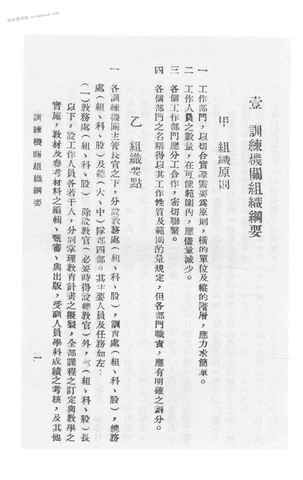 壹 訓練機關組織綱要
甲 組織原則
一 工作部門，以切合實際需要爲原則，橫的單位及縱的階層，應力求簡單。
二 工作人員之數量，在可能範圍內，應儘量減少。
三 各個工作部門應分工合作，密切聯繫。
四 各個部門之名稱得以其工作性質及範圍酌量規定，但各部門職責，應有明確之劃分。
乙 組織要點
一 各訓練機關主管長官之下，分設教務處（組、科、股），訓育處（組、科、股），總務
處（組、科、股）及總（大、中）隊部四部。其主要人員及任務如左：
（一）教務處（組、科、股） 除設教官（必要時得設總教官）外，處（組、科、股）長
以下，設工作人員各若干人，分別掌理教育計畫之擬製，全部課程之訂定與教學之
實施，教材及參考材料之編輯、審與出版，受訓人員學科成績之考核，及其他
訓練機關組織綱要
一